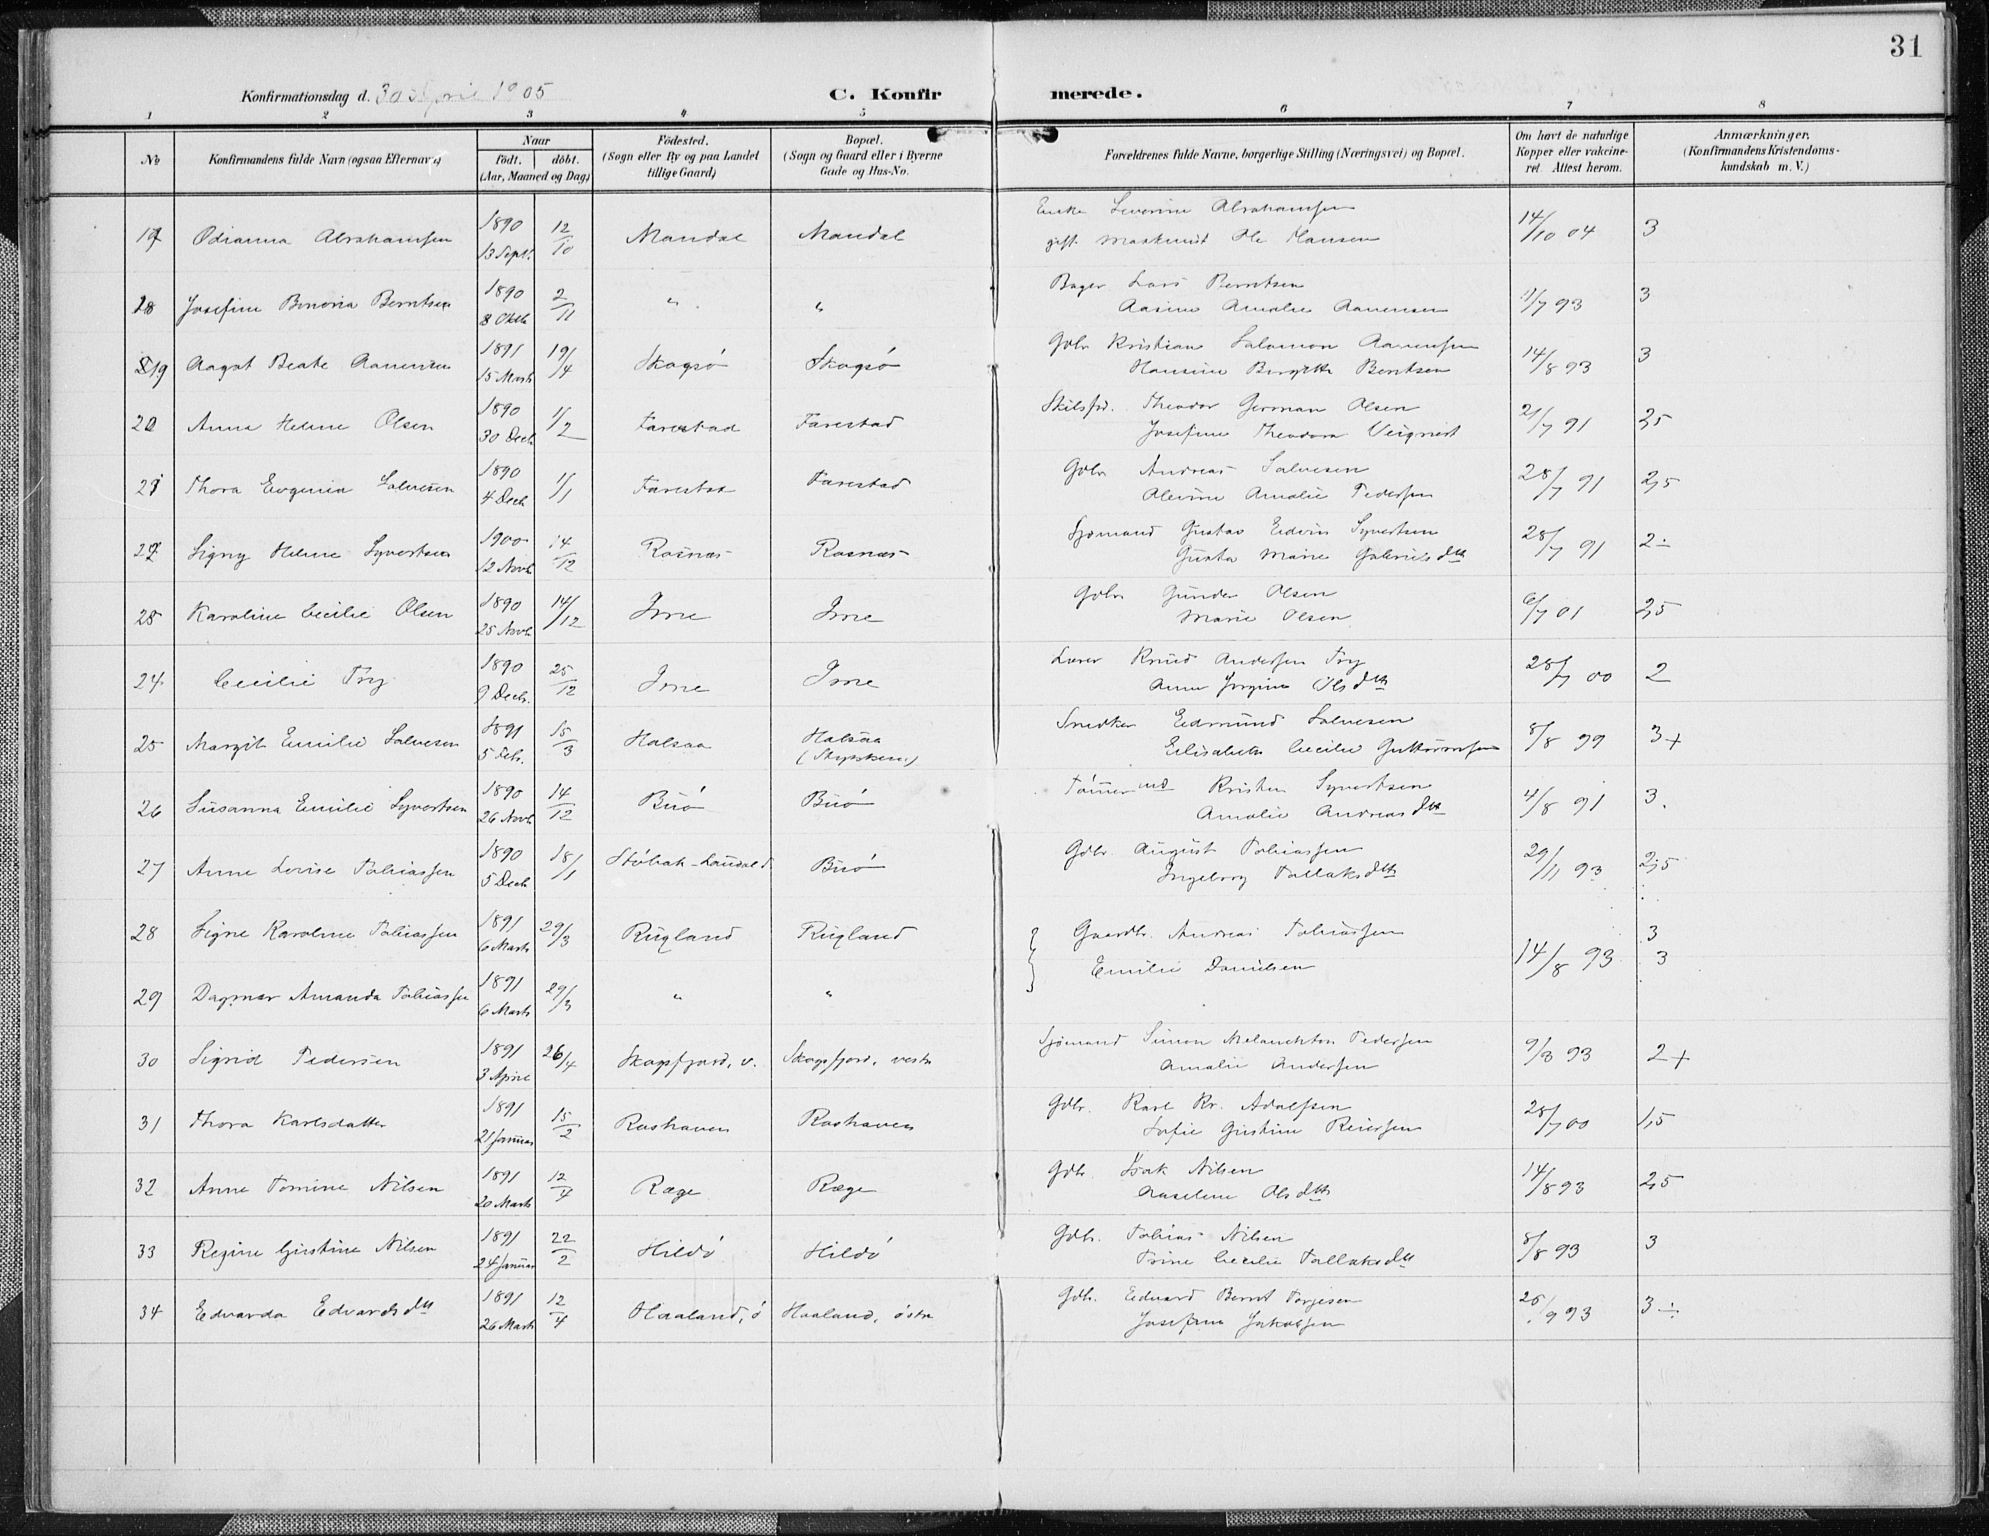 31
Konfirmationsdag d. 30 April 1905
C. Konfirmerede.
1 2 3 4 5 6 7 8
No
Konfirmandens fulde Navn (ogsaa Efternavn)
Naar
født. døbt.
(Aar, Maaned og Dag)
Fødested.
(Sogn eller By og paa Landet
tillige Gaard)
Bopæl.
(Sogn og Gaard eller i Byerne
Gade og Hus-No.
Forældrenes fulde Navne, borgerlige Stilling (Næringsvei) og Bopæl.
Om havt de naturlige
Kopper eller vakcine-
ret. Attest herom.
Anmærkninger.
(Konfirmandens Kristendoms-
kundskab m. V.)
17 Odianna Abrahamsen 1890 13 Sept. 12/10 Mandal Mandal Enke Severine Abrahamsen
gift Ole Hansen 14/10 04 3
18 Josefine Benoria Berntsen 1890 8 Oktb 2/11 " " Bager Lars Berntsen
Aasine Amalie Aanensen 11/7 93 3
19 Aagot Beate Aanensen 1891 15 Marts 19/4 Skogsø Skogsø Gdbr Kristian Salomon Aanensen
Hansine Birgitte Berntsen 14/8 93 3
20 Anna Helene Olsen 1890 30 Decb 1/2 Farestad Farestad Theodor German Olsen
Josefine Theodora 21/7 91 2,5
21 Thora Eugenia Salvesen 1890 4 Decb 1/1 Farestad Farestad Gdbr Andreas Salvesen
Alevine Amalie Pedersen 28/7 91 2,5
22 Signy Helene Syvertsen 1900 12 Novb 14/12 Rosnæs Rosnæs Sjømand Gustav Edvin Syvertsen
Gusta Marie Gabrielsdtr 28/7 91 2 ÷
23 Karoline Cecilie Olsen 1890 25 Novb 14/12 Ime Ime Gdbr Gunder Olsen
Marie Olsen 6/7 01 2,5
24 Cecilie Try 1890 9 Decb. 25/12 Ime Ime Lærer Knud Andersen Try
Anne Jørgine Olsdtr 28/7 00 2
25 Margit Emilie Salvesen 1891 5 Feb. 15/3 Halsaa Halsaa Snedker Edmund Salvesen
Elisabeth Cecilie Guttormsen 8/8 99 3+
26 Susanna Emilie Syvertsen 1890 26 Novb 14/12 Buø Buø Tømmermd Kristen Syvertsen
Amalie Andreasdtr 4/8 91 3.
27 Anne Lovise Tobiassen 1890 5 Decb 18/1 Støbak-Laudal Buø Gdbr. August Tobiassen
Ingeborg Tallaksdtr 29/11 93 2,5
28 Signe Karoline Tobiassen 1891 6 Marts 29/3 Rugland Rugland Gaardbr. Andreas Tobiassen
Emilie Danielsen 14/8 93 3
3
29 Dagmar Amanda Tobiassen 1891 6 Marts 29/3 " "
30 Sigrid Pedersen 1891 3 April 26/4 Skogsfjord, v. Skogsfjord, vestr Sjømand Simon Melanchton Pedersen
Amalie Andersen 9/3 93 2+
31 Thora Karlsdatter 1891 21 Januar 15/2 Roshaven Roshaven Gdbr. Karl Kr. Adolfsen
Sofie Gustine Reiersen 28/7 00 1,5
32 Anne Tomine Nilsen 1891 20 Marts 12/4 Ræge Ræge Gdbr. Isak Nilsen
Aaseline Olsdtr 14/8 93 2,5
33 Regine Gustine Nilsen 1891 24 Januar 22/2 Hildø Hildø Gdbr. Tobias Nilsen
Trine Cecilie Tallaksdtr 8/8 93 3
34 Edvarda Edvardsdtr 1891 26 Marts 12/4 Haaland, ø Haaland, østr Gdbr. Edvard Bernt Torjesen
Josefine Jakobsen 26/9 93 3 ÷